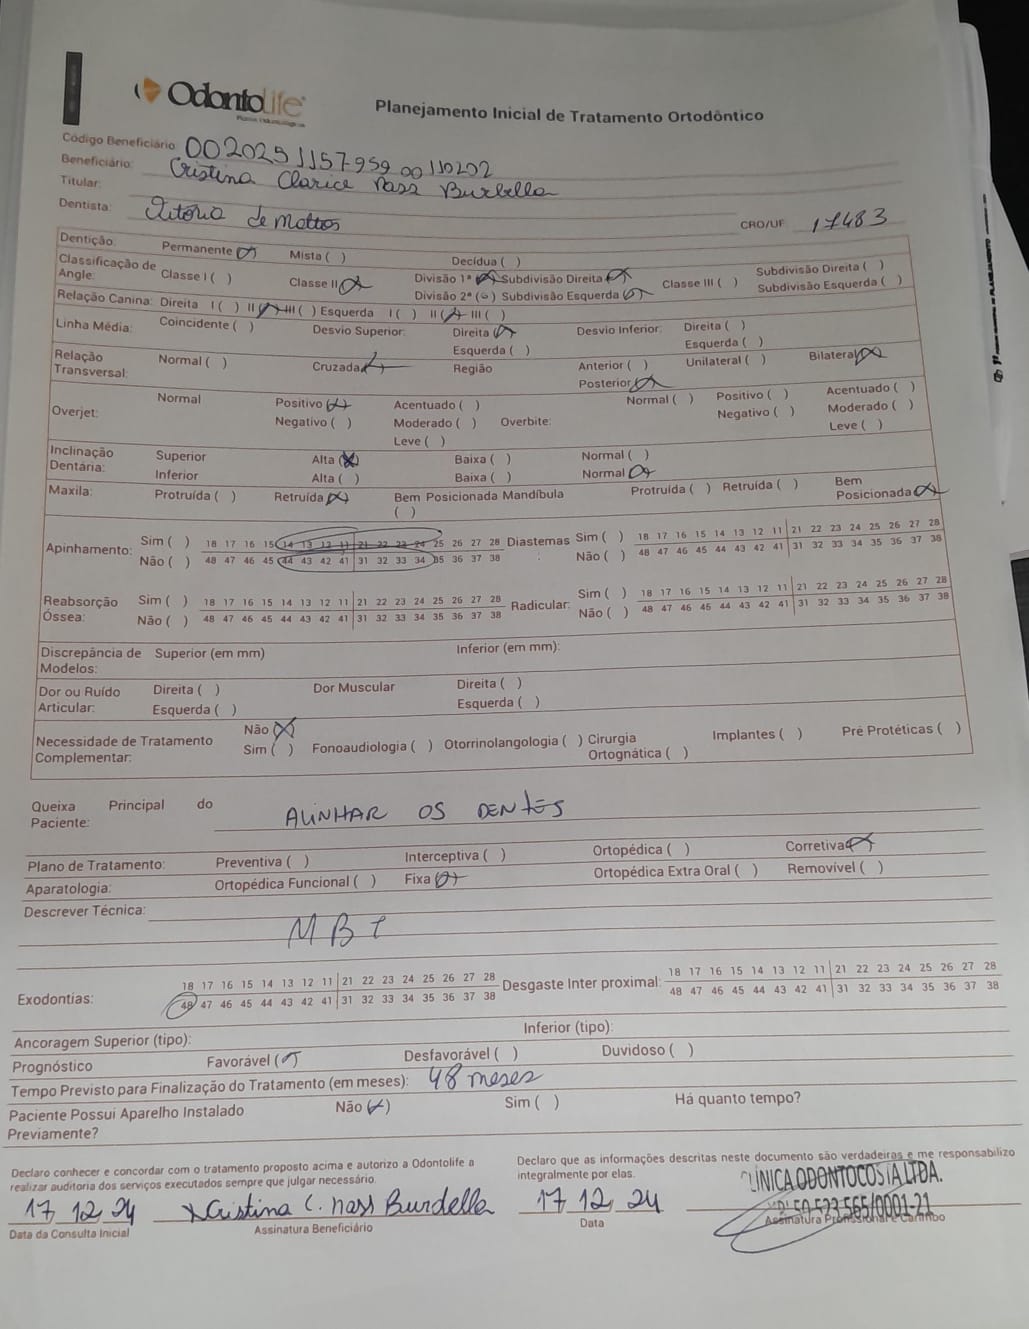 OdontoLife
Planos Odontológicos
Planejamento Inicial de Tratamento Ortodôntico
Código Beneficiário: 00202511579590011020 2
Beneficiário: Cristina Clarice Nass Burdella
Titular:
Dentista: Vitória de Mattos CRO/UF 17483
Dentição: Permanente (x) Mista ( ) Decídua ( )
Classificação de Angle: Classe I ( ) Classe II (x) Divisão 1ª (x) Subdivisão Direita (x) Classe III ( ) Subdivisão Direita ( )
Divisão 2ª ( ) Subdivisão Esquerda (x) Subdivisão Esquerda ( )
Relação Canina: Direita I ( ) II (x) III ( ) Esquerda I ( ) II (x) III ( )
Linha Média: Coincidente ( ) Desvio Superior: Direita (x) Desvio Inferior: Direita ( )
Esquerda ( ) Esquerda ( )
Relação Transversal: Normal ( ) Cruzada (x) Região Anterior ( ) Unilateral ( ) Bilateral (x)
Posterior (x)
Overjet: Normal Positivo (x) Acentuado ( ) Overbite: Normal ( ) Positivo ( ) Acentuado ( )
Negativo ( ) Moderado ( ) Negativo ( ) Moderado ( )
Leve ( ) Leve ( )
Inclinação Dentária: Superior Alta (x) Baixa ( ) Normal ( )
Inferior Alta ( ) Baixa ( ) Normal (x)
Maxila: Protruída ( ) Retruída (x) Bem Posicionada ( ) Mandíbula Protruída ( ) Retruída ( ) Bem Posicionada (x)
Apinhamento: Sim ( ) 18 17 16 15 14 13 12 11 21 22 23 24 25 26 27 28 Diastemas: Sim ( ) 18 17 16 15 14 13 12 11 21 22 23 24 25 26 27 28
Não ( ) 48 47 46 45 44 43 42 41 31 32 33 34 35 36 37 38 Não ( ) 48 47 46 45 44 43 42 41 31 32 33 34 35 36 37 38
Reabsorção Óssea: Sim ( ) 18 17 16 15 14 13 12 11 21 22 23 24 25 26 27 28 Radicular: Sim ( ) 18 17 16 15 14 13 12 11 21 22 23 24 25 26 27 28
Não ( ) 48 47 46 45 44 43 42 41 31 32 33 34 35 36 37 38 Não ( ) 48 47 46 45 44 43 42 41 31 32 33 34 35 36 37 38
Discrepância de Modelos: Superior (em mm) Inferior (em mm):
Dor ou Ruído Articular: Direita ( ) Dor Muscular Direita ( )
Esquerda ( ) Esquerda ( )
Necessidade de Tratamento Complementar: Não (x)
Sim ( ) Fonoaudiologia ( ) Otorrinolangologia ( ) Cirurgia Ortognática ( ) Implantes ( ) Pré Protéticas ( )
Queixa Principal do Paciente: ALINHAR OS DENTES
Plano de Tratamento: Preventiva ( ) Interceptiva ( ) Ortopédica ( ) Corretiva (x)
Aparatologia: Ortopédica Funcional ( ) Fixa (x) Ortopédica Extra Oral ( ) Removível ( )
Descrever Técnica:
MBT
Exodontias: 18 17 16 15 14 13 12 11 21 22 23 24 25 26 27 28 Desgaste Inter proximal: 18 17 16 15 14 13 12 11 21 22 23 24 25 26 27 28
48 47 46 45 44 43 42 41 31 32 33 34 35 36 37 38 48 47 46 45 44 43 42 41 31 32 33 34 35 36 37 38
Ancoragem Superior (tipo): Inferior (tipo):
Prognóstico Favorável (x) Desfavorável ( ) Duvidoso ( )
Tempo Previsto para Finalização do Tratamento (em meses): 48 meses
Paciente Possui Aparelho Instalado Previamente? Não (x) Sim ( ) Há quanto tempo?
Declaro conhecer e concordar com o tratamento proposto acima e autorizo a Odontolife a
realizar auditoria dos serviços executados sempre que julgar necessário.
Declaro que as informações descritas neste documento são verdadeiras e me responsabilizo
integralmente por elas.
CLÍNICA ODONTOCOSTA LTDA.
59.523.565/0001-21
17 12 24 x Cristina C. Nass Burdella 17 12 24
Data da Consulta Inicial Assinatura Beneficiário Data Assinatura Profissional e Carimbo